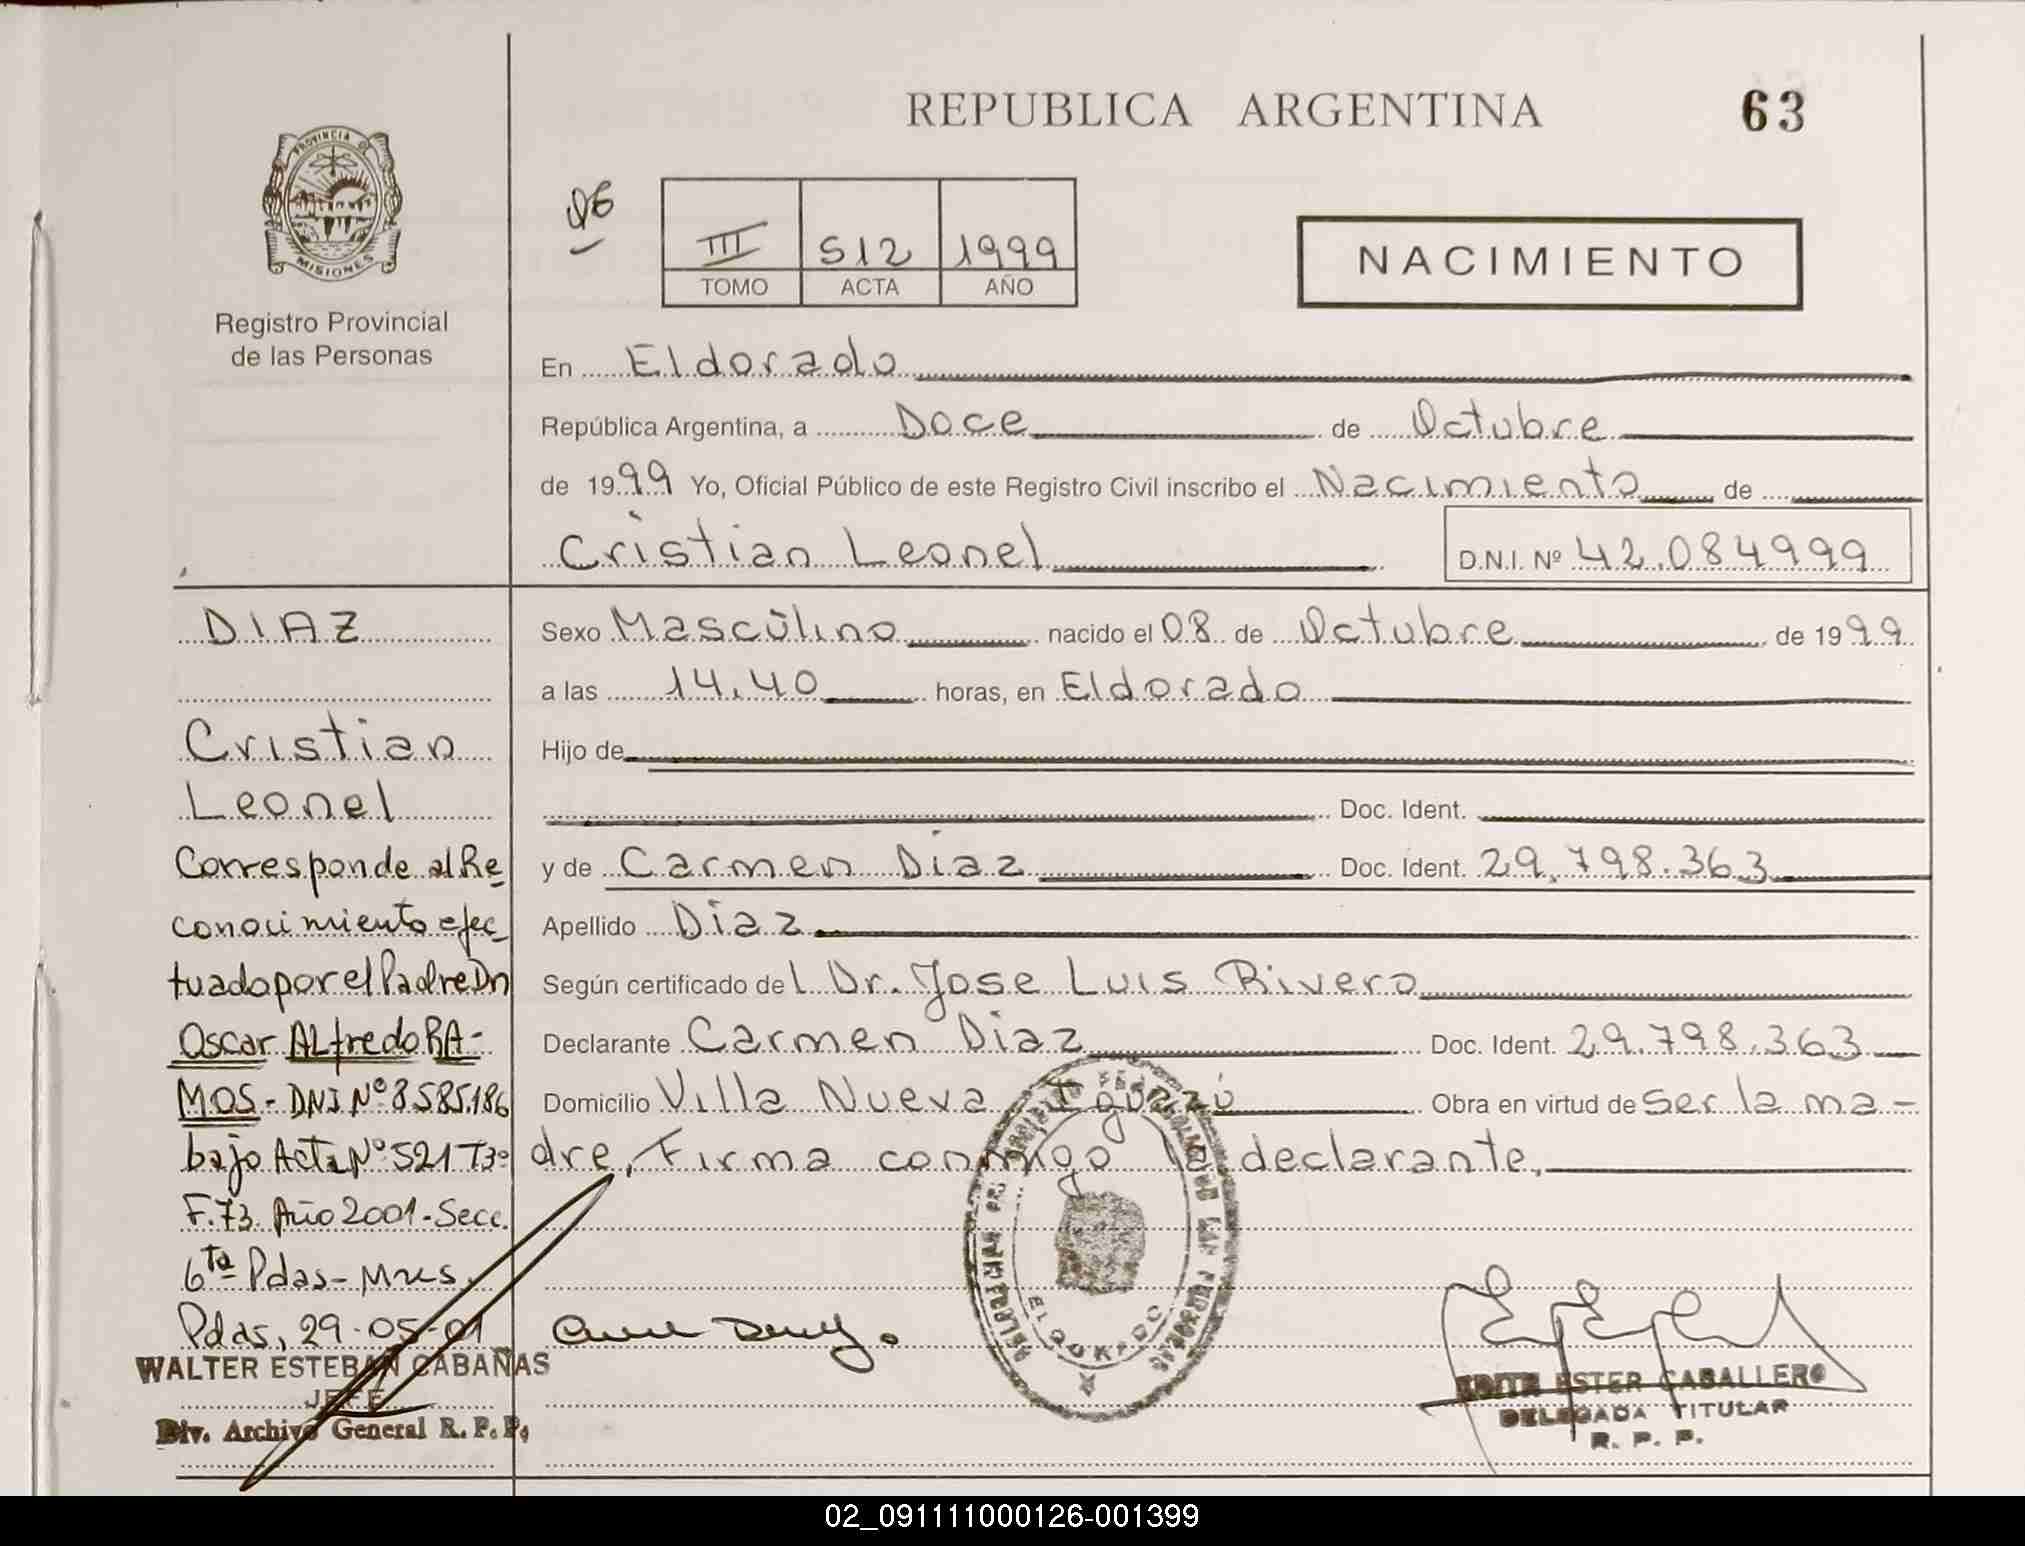 REPUBLICA ARGENTINA
63
PROVINCIA DE
MISIONES
Registro Provincial
de las Personas
III S12 1999
TOMO ACTA AÑO
NACIMIENTO
En Eldorado
República Argentina, a Doce de Octubre
de 1999 Yo, Oficial Público de este Registro Civil inscribo el Nacimiento de
Cristian Leonel
D.N.I. Nº 42.084999
DIAZ
Cristian
Leonel
Corresponde al Re
conocimiento efec
tuado por el Padre Dn
Oscar ALfredo RA-
MOS - DNI Nº 8585186
bajo Acta Nº 521 T3º
F.73 Año 2001-Secc.
6ta Pdas-Mnes.
Pdas, 29-05-01
WALTER ESTEBAN CABAÑAS
JEFE
Div. Archivo General R. P. P.
Sexo Masculino nacido el 08 de Octubre de 1999
a las 14.40 horas, en Eldorado
Hijo de
Doc. Ident.
y de Carmen Diaz Doc. Ident. 29.798.363
Apellido Diaz
Según certificado del Dr. Jose Luis Rivero
Declarante Carmen Diaz Doc. Ident. 29.798.363
Domicilio Villa Nueva Iguazú Obra en virtud de ser la ma-
dre, Firma conmigo la declarante,
ELDORADO
EDITH ESTER CABALLERO
DELEGADA TITULAR
R. P. P.
02_091111000126-001399